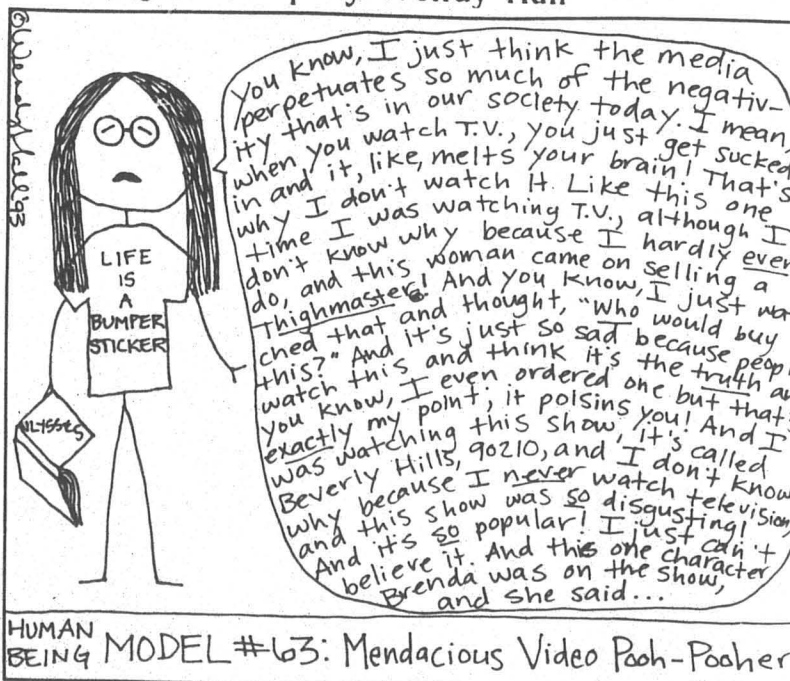 © Wendy Hall 93
You know, I just think the media
perpetuates so much of the negativ-
ity that's in our society today. I mean,
when you watch T.V., you just get sucked
in and it, like, melts your brain! That's
why I don't watch it. Like this one
time I was watching T.V., although I
don't know why because I hardly ever
do, and this woman came on selling a
Thighmaster! And you know, I just wat
ched that and thought, "Who would buy
this?" And it's just so sad because peop
watch this and think it's the truth an
you know, I even ordered one but that
exactly my point; it poisins you! And I
was watching this show, it's called
Beverly Hills, 90210, and I don't know
why because I never watch television,
and this show was so disgusting!
And it's so popular! I just can't
believe it. And this one character
Brenda was on the show,
and she said...
LIFE
IS
A
BUMPER
STICKER
ULYSSES
HUMAN
BEING MODEL #63: Mendacious Video Pooh-Pooher